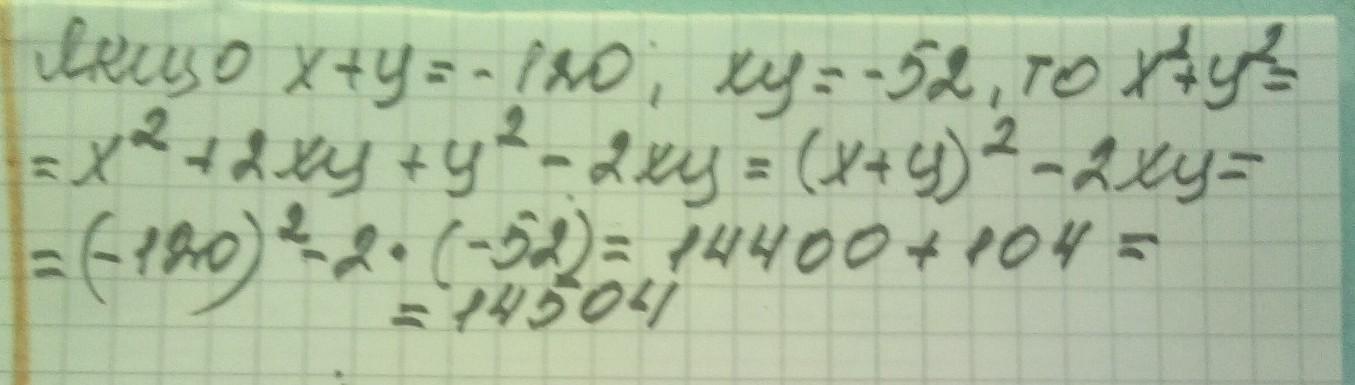 Якщо x+y=-120; xy=-52, то x²+y²=
=x²+2xy+y²-2xy=(x+y)²-2xy=
=(-120)²-2·(-52)=14400+104=
=14504